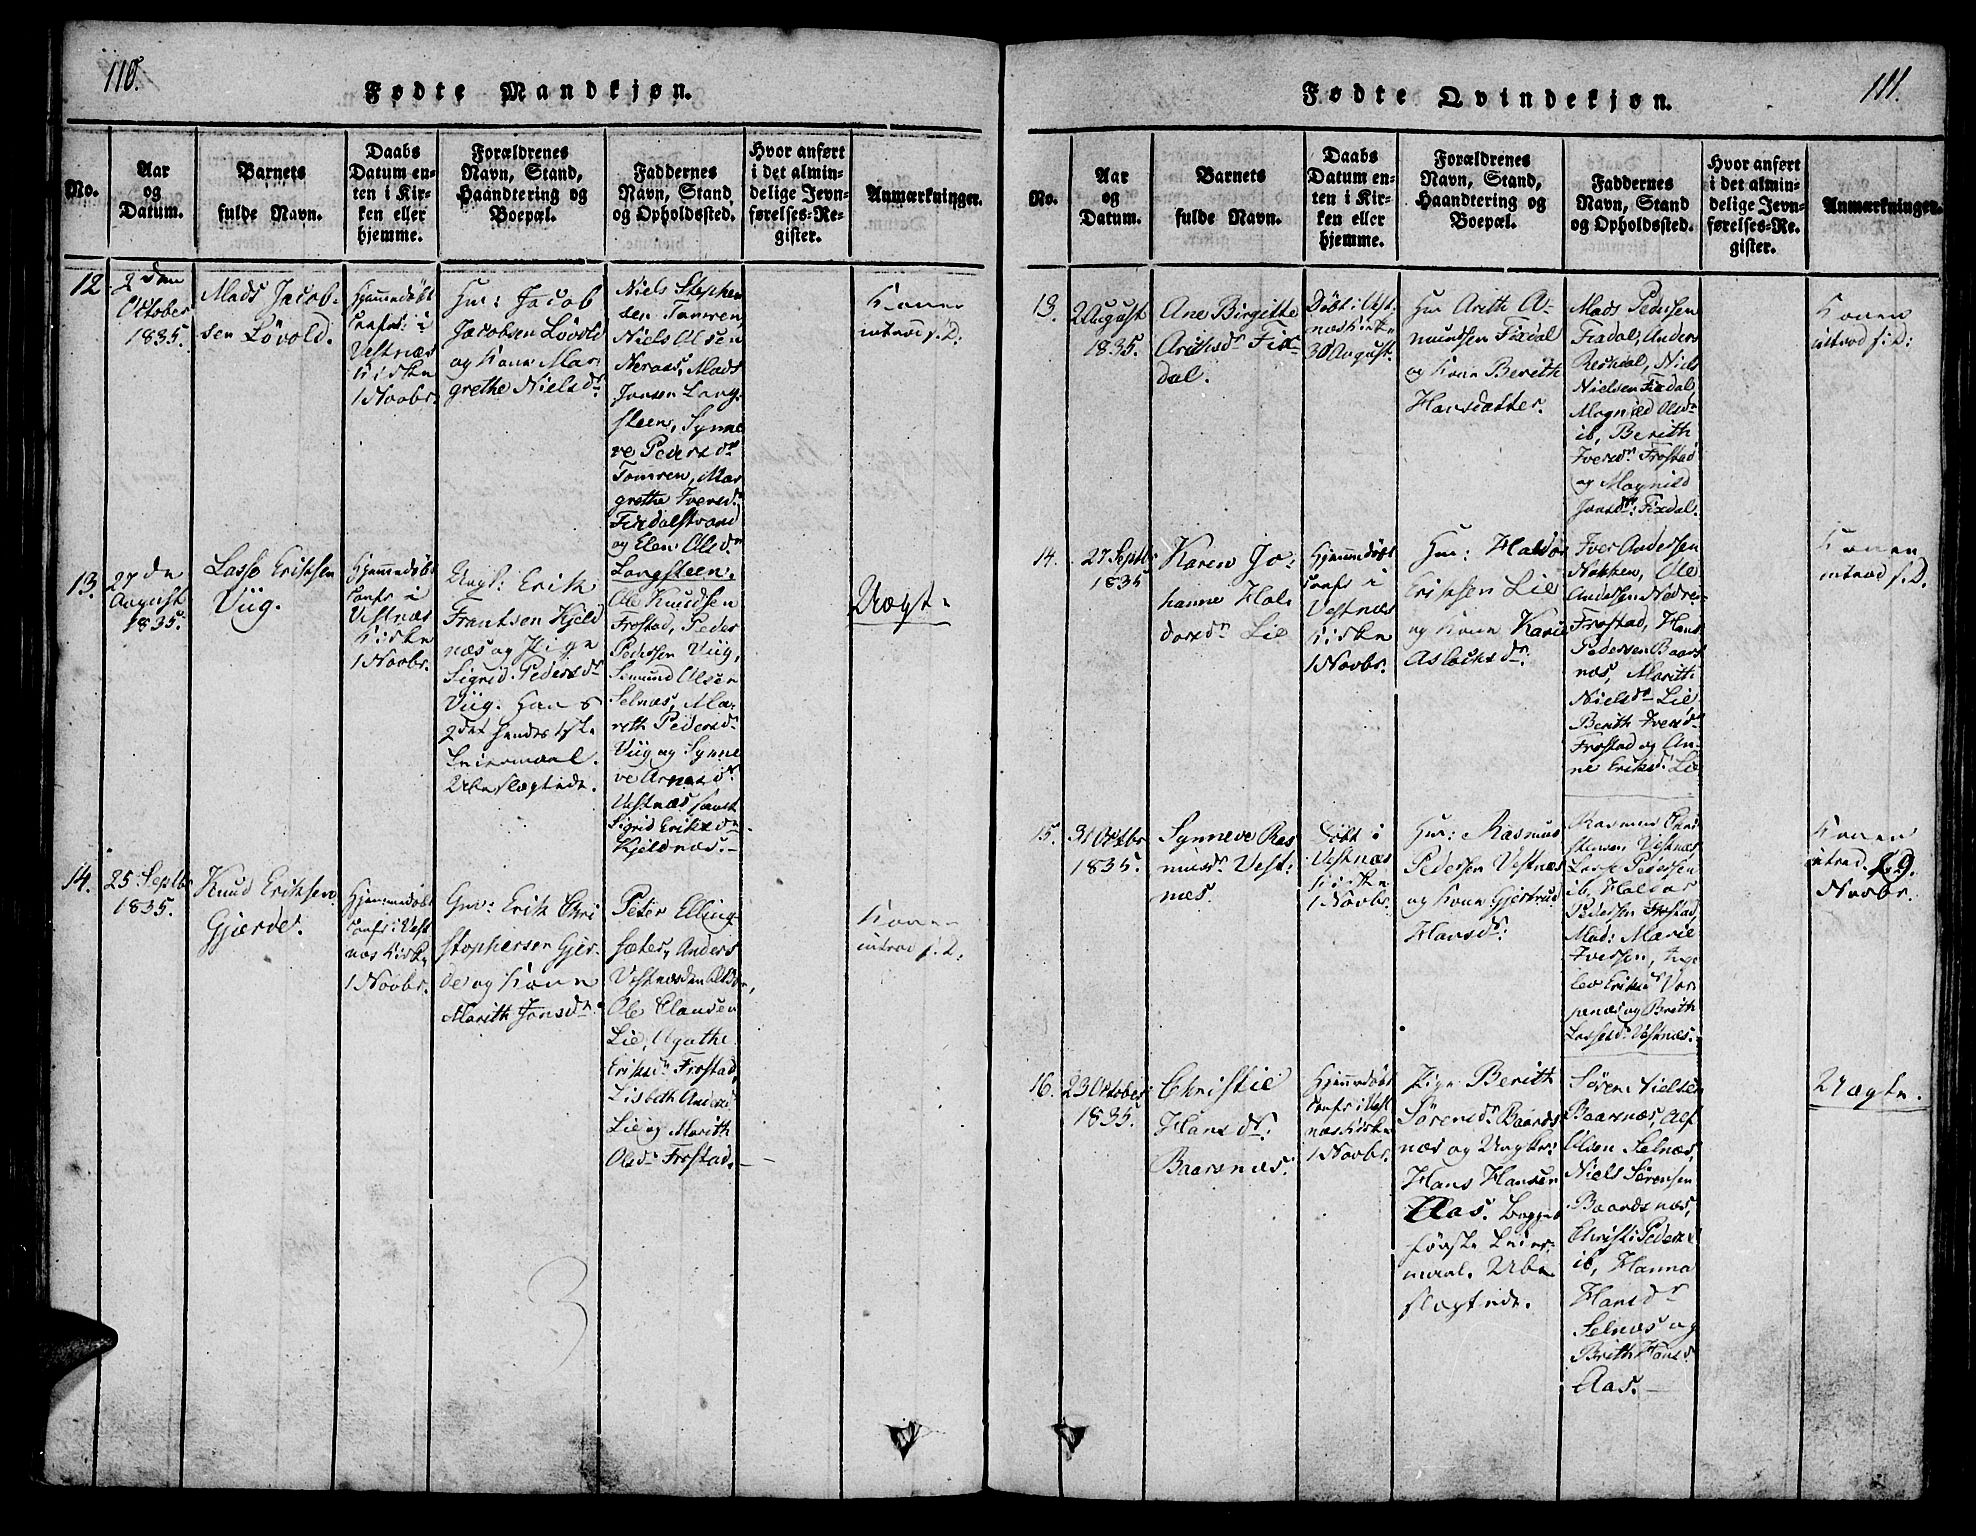 110.
Fødte Mandkjøn.
No.
Aar
og
Datum.
Barnets
fulde Navn.
Daabs
Datum en-
ten i Kir-
ken eller
hjemme.
Forældrenes
Navn, Stand,
Haandtering og
Boepæl.
Faddernes
Navn, Stand
og Opholdssted.
Hvor anført
i det almin-
delige Jevn-
førelses-Re-
gister.
Anmærkninger.
12
2den
October
1835.
Mads Jacob-
sen Lövold.
Hjemmedöbt
Confr: i
Vestnæs
Kirke
1 Novbr.
Gm: Jacob
Jacobsen Lövold
og Kone Mar-
grethe Nielsdr
Niels Stephen
sen Tomren,
Niels Olsen
Neraas, Mads
Jonsen Lang-
steen, Synne
ve Pedersdr
Tomren, Mar
grethe Iversdr
Fixdalstrand
og Elen Olsdr
Langsteen.
Konen
introd. s. D.
13.
27de
August
1835.
Lasse Eriksen
Viig.
Hjemmedöbt
Confr i
Vestnæs
Kirke
1 Novbr.
Ungk: Erik
Frantsen Kjeld
næs og Pige
Sigrid Pedersdr
Viig. Hans
2det hendes 1ste
Leiermaal.
Ubeslægtede.
Ole Knudsen
Frostad, Peder
Pedersen Viig,
Semund Olsen
Selnæs, Ma-
reth Pedersdr
Viig og Synne
ve Arnesdr
Vestnæs samt
Sigrid Eriksdr
Kjeldnæs.
Uægte
14.
25 Septbr
1835.
Knud Eriksen
Gjærde.
Hjemmedöbt
Confr: i Vest
næs Kirke
1 Novbr.
Gm: Erik Chri
stophersen Gjer-
de og Kone
Marith Jonsdr
Peter Elling
sæter, Anders
Vestnæs den Ældre,
Ole Clausen
Lie, Agathe
Eriksdr Frostad,
Lisbeth Andersd
Lie og Marith
Olsdr Frostad.
Konen
introd s. D.
111.
Fødte Qvindekjøn.
No.
Aar
og
Datum.
Barnets
fulde Navn.
Daabs
Datum en-
ten i Kir-
ken eller
hjemme.
Forældrenes
Navn, Stand,
Haandtering og
Boepæl.
Faddernes
Navn, Stand
og Opholdssted.
Hvor anført
i det almin-
delige Jevn-
førelses-Re-
gister.
Anmærkninger.
13.
2 August
1835.
Ane Birgitte
Arithsdr Fix-
dal.
Döbt i Vest-
næs Kirke
30 August.
Gm Arith A-
mundsen Fixdal
og Kone Berith
Hansdatter.
Mads Pedersen
Fixdal, Anders
Reskdal, Niels
Nielsen Fixdal,
Magnild Olsdr
ib, Berith
Iversdr Frostad
og Magnild
Jonsdr: Fixdal.
Konen
introd s. D:
14.
27 Septbr
1835
Karen Jo-
hanne Hal-
dorsdr Lie
Hjemmedöbt
Confr i
Vestnæs
Kirke
1 Novbr.
Gm: Haldor
Eriksen Lie
og Kone Karie
Aslachsdr.
Iver Andersen
Nakken, Ole
Andersen Nedre-
Frostad, Hans
Pedersen Baars
næs, Marith
Nielsdr Lie
Berith Iversdr
Frostad og An-
ne Eriksd. Lie
Konen
introd s. D.
15.
31 Octbr
1835.
Synneve Ras
musdr Vest-
næs.
Döbt i
Vestnæs
Kirke
1 Novbr.
Gm: Rasmus
Pedersen Vestnæs
og Kone Gjertrud
Hansdr:
Rasmus Chri
stensen Vestnæs
Lasse Pedersen
ib, Haldor
Pedersen Frostad,
Mad: Marie
Iversen, Inge
lev Eriksd Vor
penæs og Brith
Lassesdr Vestnæs.
Konen
introd. 29.
Novbr.
16.
23 October
1835.
Christie
Hansdr:
Baarsnæs.
Hjemmedöbt
Confr i Vest
næs Kirke
1 Novbr.
Pige Berith
Sörensdr Baards
næs og Ungkr:
Hans Hansen
Aas. Begges
förste Leier-
maal. Ube
slægtede.
Sören Nielsen
Baarsnæs, Alf
Olsen Selnæs,
Niels Sörensen
Baardsnæs,
Christi Pedersd
ib, Hanna
Hansdr
Selnæs og
Brith Hansd.
Aas.
Uægte.